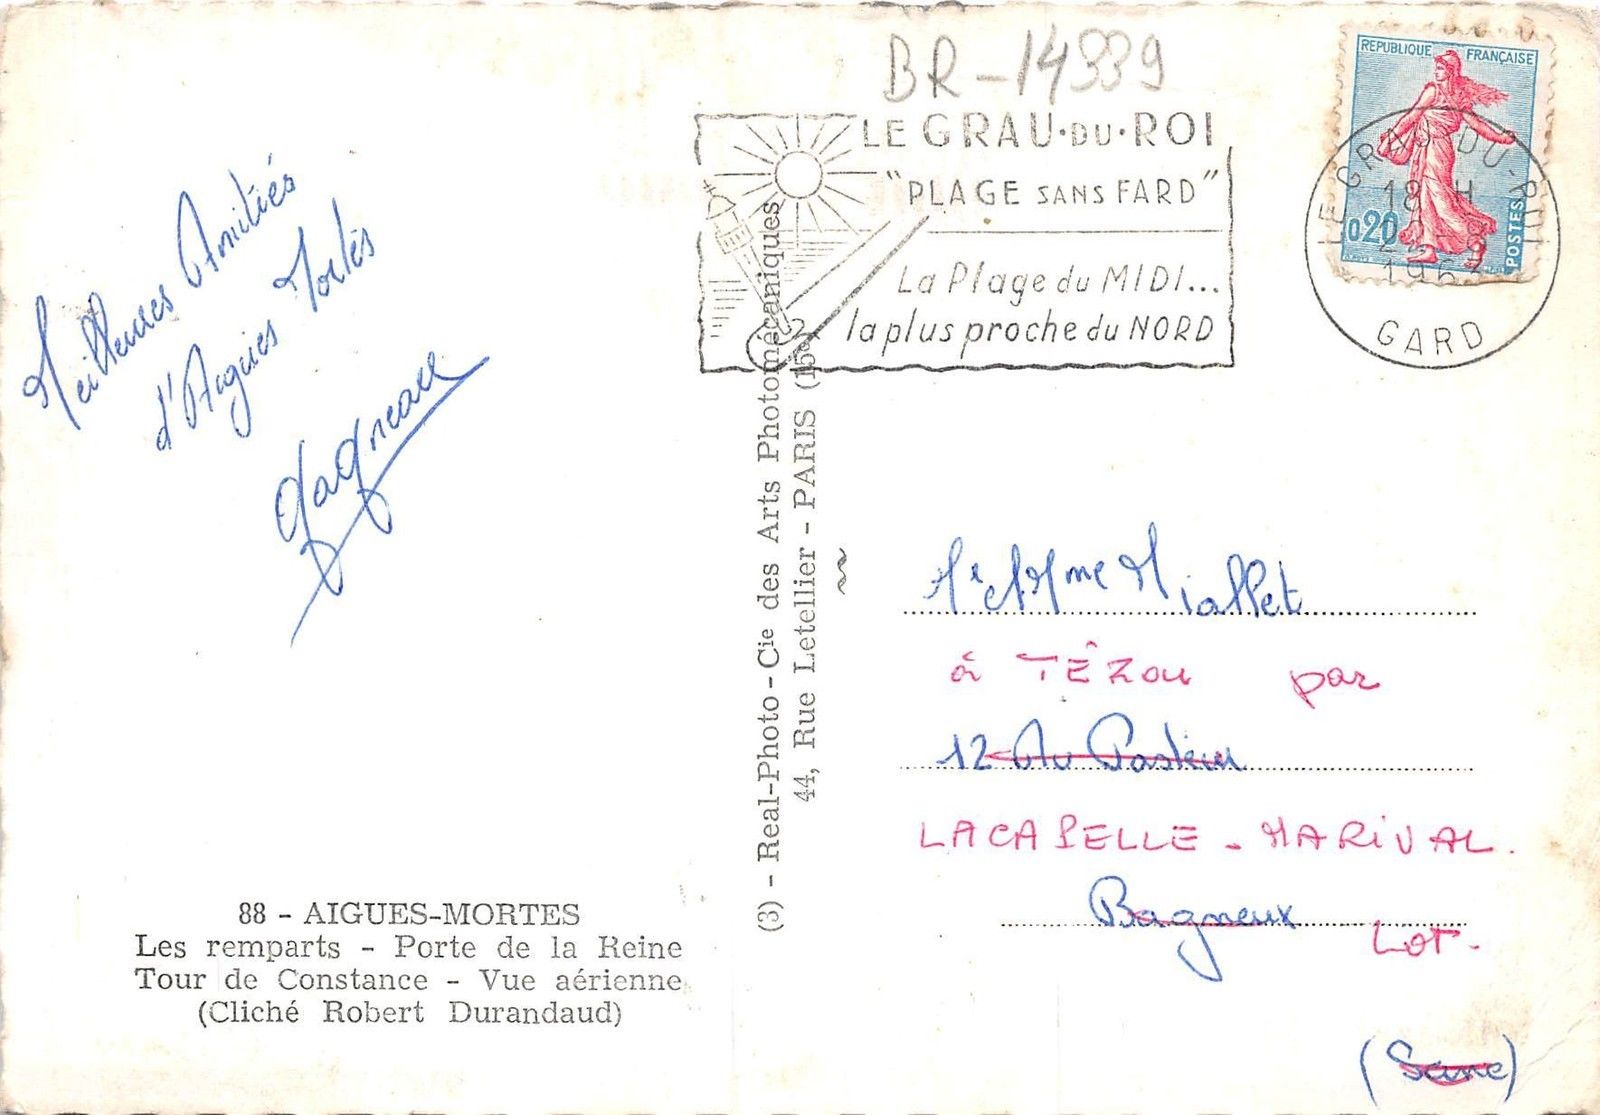 BR-14339
LE GRAU·DU·ROI
"PLAGE SANS FARD"
La Plage du MIDI...
la plus proche du NORD
REPUBLIQUE FRANÇAISE
0,20
POSTES
LE GRAU-DU-ROI
18 H
1963
GARD
Meilleures Amitiés
d'Aigues Mortes
Gagneau
88 - AIGUES-MORTES
Les remparts - Porte de la Reine
Tour de Constance - Vue aérienne
(Cliché Robert Durandaud)
(3) - Real-Photo - Cie des Arts Photomécaniques
44, Rue Letellier - PARIS (15e)
Mr et Mme Miallet
à TÊZOU par
12 Av Pasteur
LACAPELLE - MARIVAL.
Bagneux
Lot.
(Seine)